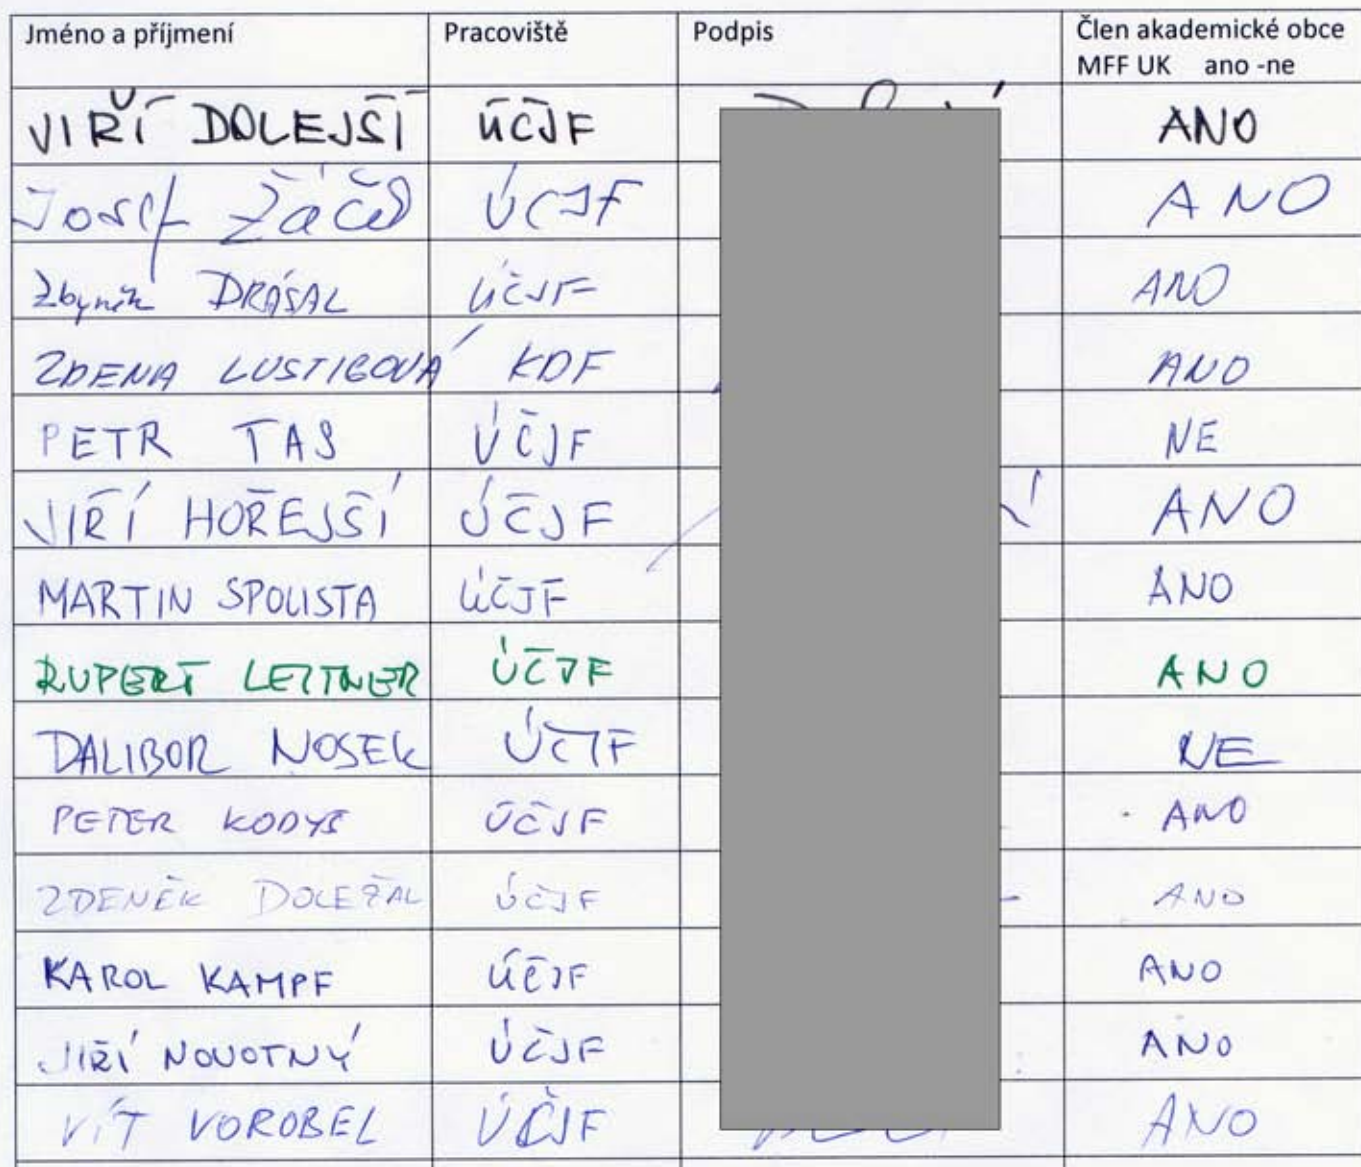 Jméno a příjmení Pracoviště Podpis Člen akademické obce
MFF UK ano -ne
JIŘÍ DOLEJŠÍ ÚČJF ANO
Josef Žáček ÚČJF ANO
Zbyněk DRÁSAL ÚČJF ANO
ZDENA LUSTIGOVÁ KDF ANO
PETR TAS ÚČJF NE
JIŘÍ HOŘEJŠÍ ÚČJF ANO
MARTIN SPOUSTA ÚČJF ANO
RUPERT LEITNER ÚČJF ANO
DALIBOR NOSEK ÚČJF NE
PETER KODYŠ ÚČJF ANO
ZDENĚK DOLEŽAL ÚČJF ANO
KAROL KAMPF ÚČJF ANO
JIŘÍ NOVOTNÝ ÚČJF ANO
VÍT VOROBEL ÚČJF ANO